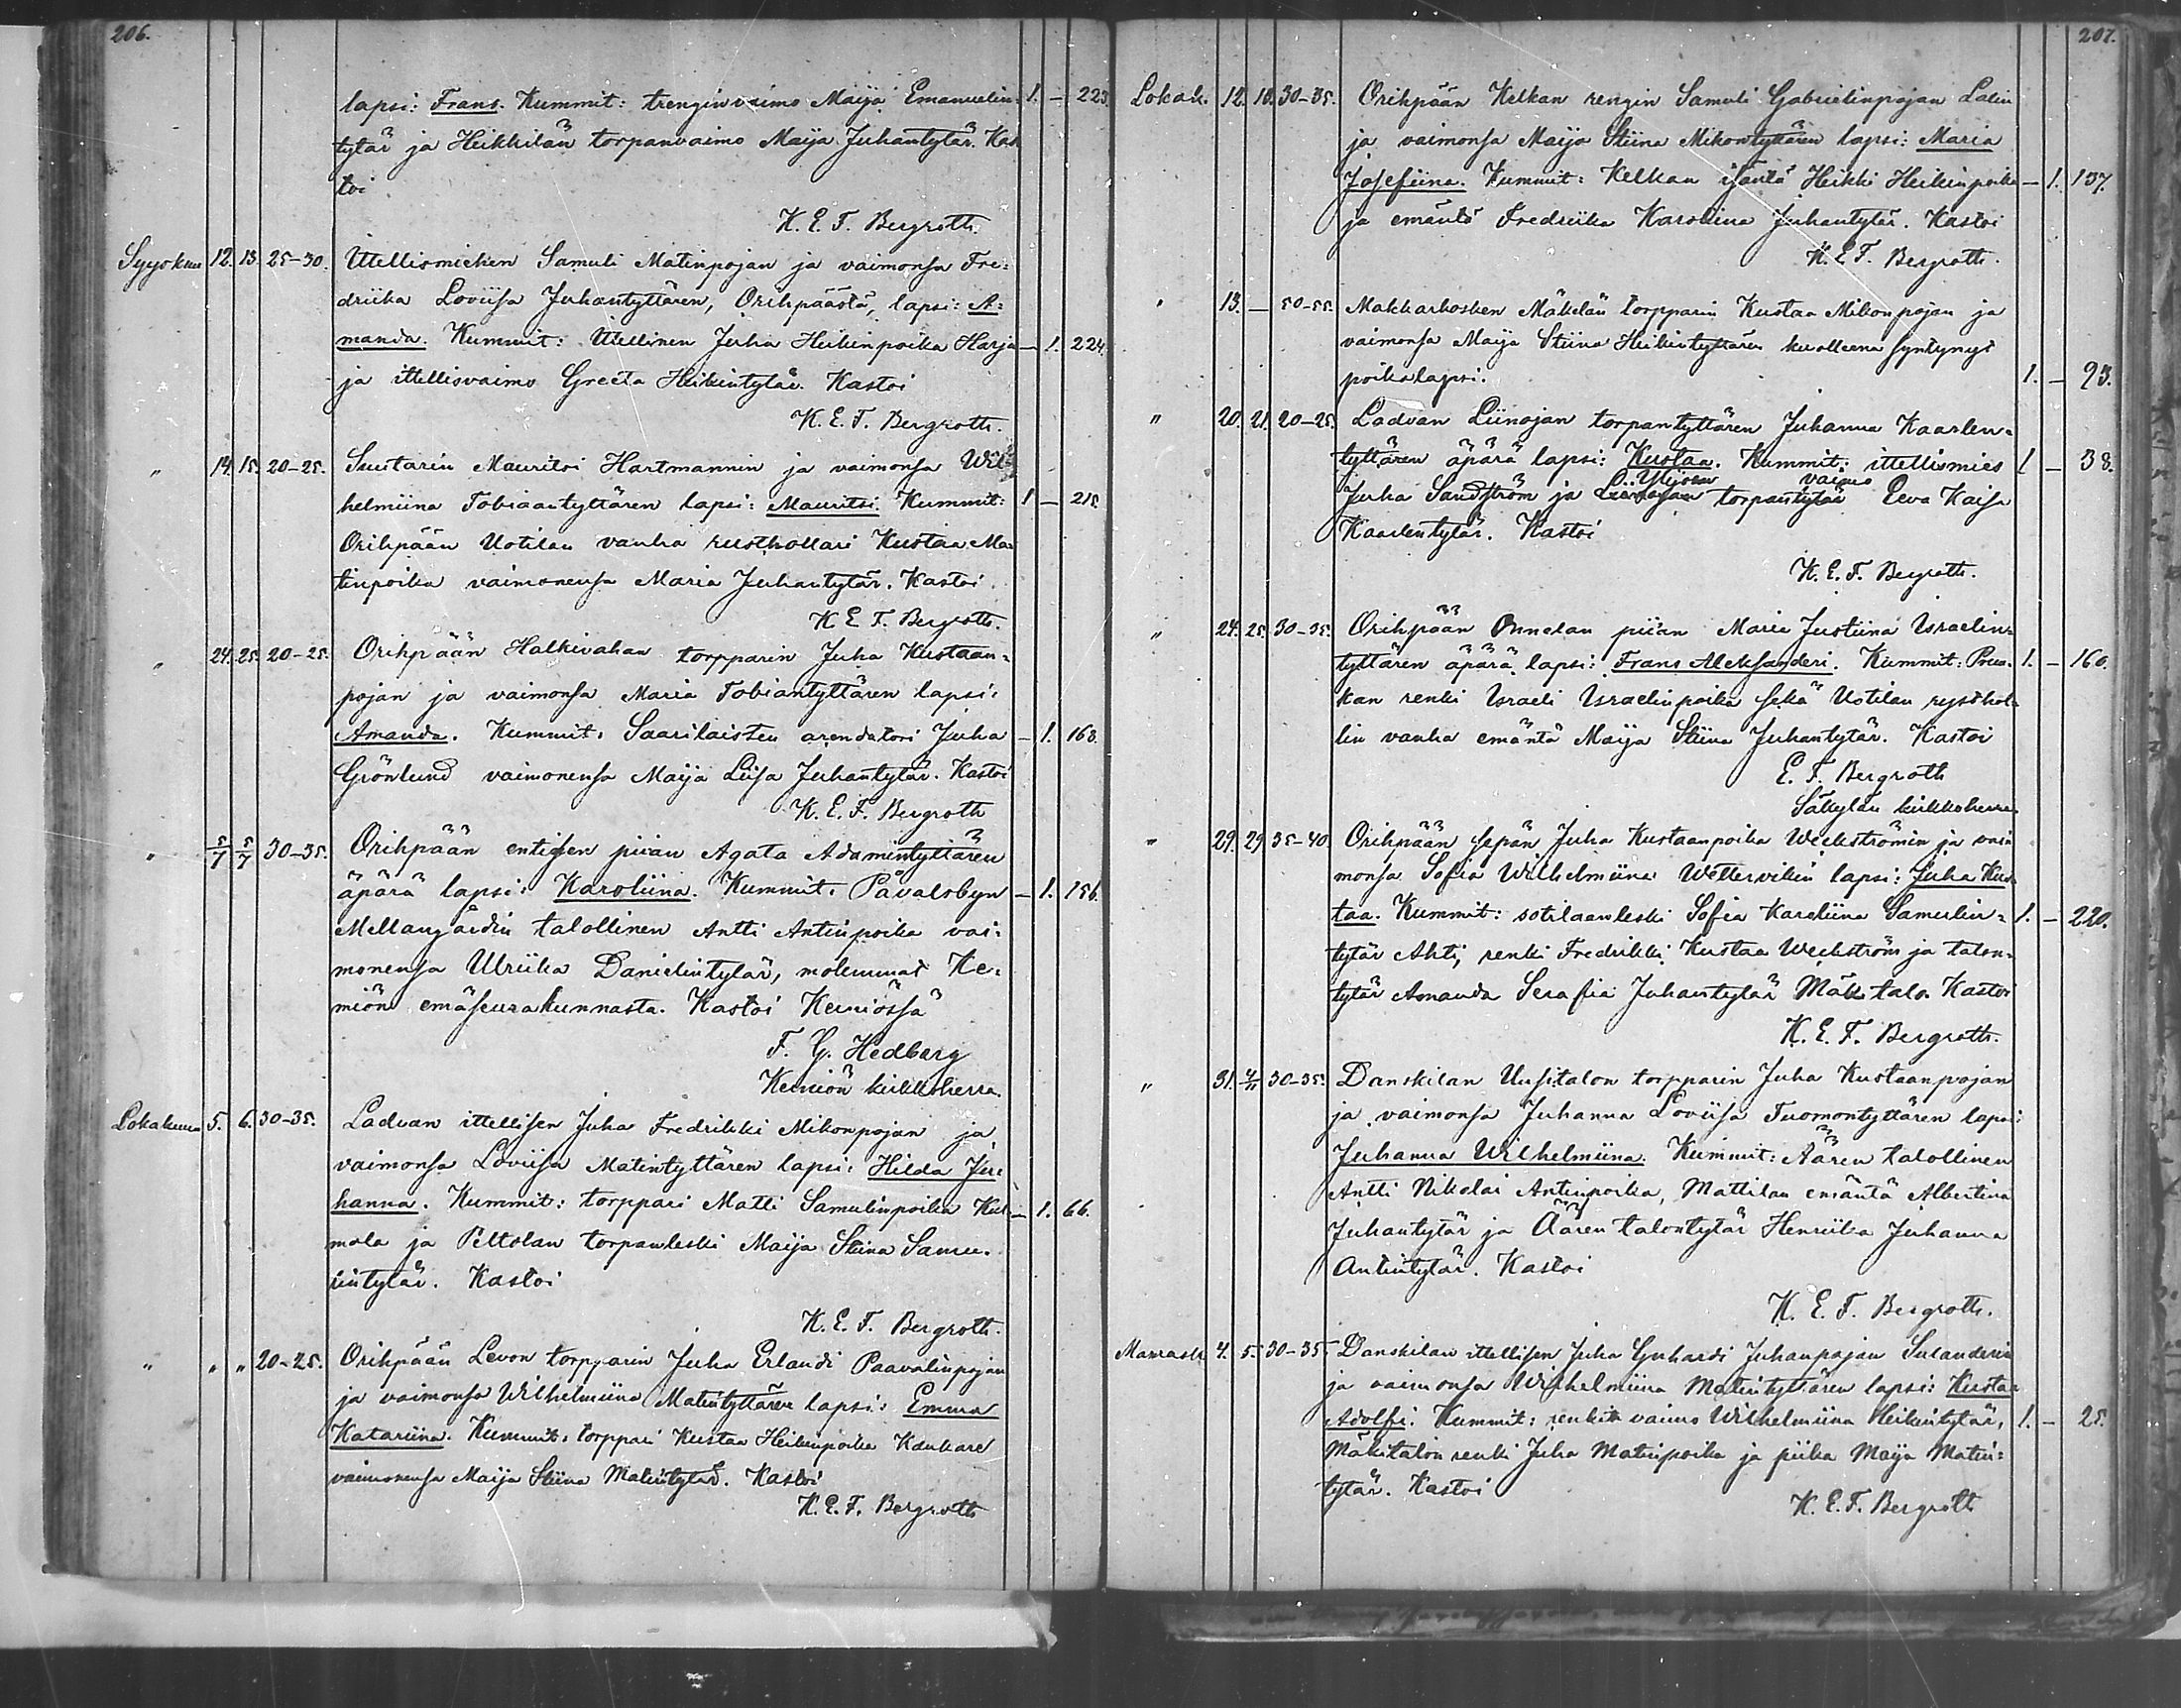 206.
lapsi: Frans. Kummit: trenginvaimo Maija Emanuelin- 1. — 223.
tytär ja Heikkilän torpanvaimo Maija Juhantytär. Kas
toi
K. E. F. Bergroth.
Syyskuu 12. 13. 25-30. Ittellismiehen Samuli Matinpojan ja vaimonsa Fre-
driika Loviisa Juhantyttären, Orihpäästä, lapsi: A-
manda. Kummit: Itellinen Juha Heikinpoika Harja — 1. 224.
ja ittellisvaimo Greeta Heikintytär. Kastoi
K. E. F. Bergroth.
" 14. 15. 20-25. Suutarin Mauritsi Hartmannin ja vaimonsa Wil-
helmiina Tobiaantyttären lapsi: Mauritsi. Kummit: 1 — 215.
Orihpään Uotilan vanha rusthollari Kustaa Ma-
tinpoika vaimonensa Maria Juhantytär. Kastoi.
K E F. Bergroth.
" 24. 25. 20-25. Orihpään Halkivahan torpparin Juha Kustaan-
pojan ja vaimonsa Maria Tobiantyttären lapsi:
Amanda. Kummit: Saarilaisten arendatori Juha — 1. 163.
Grönlund vaimonensa Maija Liisa Juhantytär. Kastoi
K. E. F. Bergroth
" 5/7 5/7 30-35. Orihpään entisen piian Agata Adamintyttären
äpärä lapsi: Karoliina. Kummit: Påvalsbyn — 1. 156.
Mellangårdin talollinen Antti Antinpoika vai-
monensa Ulriika Danielintytär, molemmat Ke-
miön emäseurakunnasta. Kastoi Kemiössä
F. G. Hedberg
Kemiön kirkkoherra.
Lokakuu 5. 6. 30-35. Ladvan ittellisen Juha Fredrikki Mikonpojan ja
vaimonsa Loviisa Matintyttären lapsi: Hilda Ju-
hanna. Kummit: torppari Matti Samulinpoika — 1. 66.
mala ja Peltolan torpanleski Maija Stiina Samu-
lintytär. Kastoi
K. E. F. Bergroth.
" " " 20-25. Orihpään Levon torpparin Juha Erlandi Paavalinpojan
ja vaimonsa Wilhelmiina Matintyttären lapsi: Emma
Katariina. Kummit: torppari Kustaa Heikinpoika
vaimonensa Maija Stiina Matintytär. Kastoi
K. E. F. Bergroth
207.
Lokak. 12. 18. 30-35. Orihpään Kelkan rengin Samuli Gabrielinpojan
ja vaimonsa Maija Stiina Mikontyttären lapsi: Maria
Josefiina. Kummit: Kelkan isäntä Heikki Heikinpoika — 1. 137.
ja emäntä Fredriika Karoliina Juhantytär. Kastoi
K. E. F. Bergroth.
" 13. — 50-55. Makkarkosken Mäkelän torpparin Kustaa Mikonpojan ja
vaimonsa Maija Stiina Heikintyttären kuolleena syntynyt
poikalapsi. 1. — 93.
" 20. 21. 20-25. Ladvan Liinojan torpantyttären Juhanna Kaarlen-
tyttären äpärä lapsi: Kustaa. Kummit: ittellismies 1 — 38.
vaimo
Juha Sandström ja Liinojan torpantytär Eeva Kaisa
Kaarlentytär. Kastoi
K. E. F. Bergroth.
" 24. 25. 30-35. Orihpään Onnelan piian Maria Justiina Israelin-
tyttären äpärä lapsi: Frans Aleksanderi. Kummit: Prus- 1. — 160.
kan renki Israeli Israelinpoika sekä Uotilan rysthol-
lin vanha emäntä Maija Stiina Juhantytär. Kastoi
E. F. Bergroth
Säkylän kirkkoherra.
" 29. 29. 35-40. Orihpään sepän Juha Kustaanpoika Weckströmin ja vai-
monsa Sofia Wilhelmiina Wettervikin lapsi: Juha Kus-
taa. Kummit: sotilaanleski Sofia Karoliina Samulin- 1. — 220.
tytär Ahti, renki Fredrikki Kustaa Weckström ja talon-
tytär Amanda Serafia Juhantytär Mäkitalo. Kastoi
K. E. F. Bergroth.
" 31. 4/11 30-35. Danskilan Uusitalon torpparin Juha Kustaanpojan
ja vaimonsa Juhanna Loviisa Tuomontyttären lapsi:
Juhanna Wilhelmiina. Kummit: Äären talollinen
Antti Nikolai Antinpoika, Mattilan emäntä Albertina
Juhantytär ja Äären talontytär Henriika Juhanna
Antintytär. Kastoi
K. E. F. Bergroth.
Marrask. 4. 5. 30-35. Danskilan ittellisen Juha Gerhardi Juhanpojan Sulanderin
ja vaimonsa Wilhelmiina Matintyttären lapsi: Kustaa
Adolfi. Kummit: renkin vaimo Wilhelmiina Heikintytär, 1. — 25.
Mäkitalon renki Juha Matinpoika ja piika Maija Matin-
tytär. Kastoi
K. E. F. Bergroth